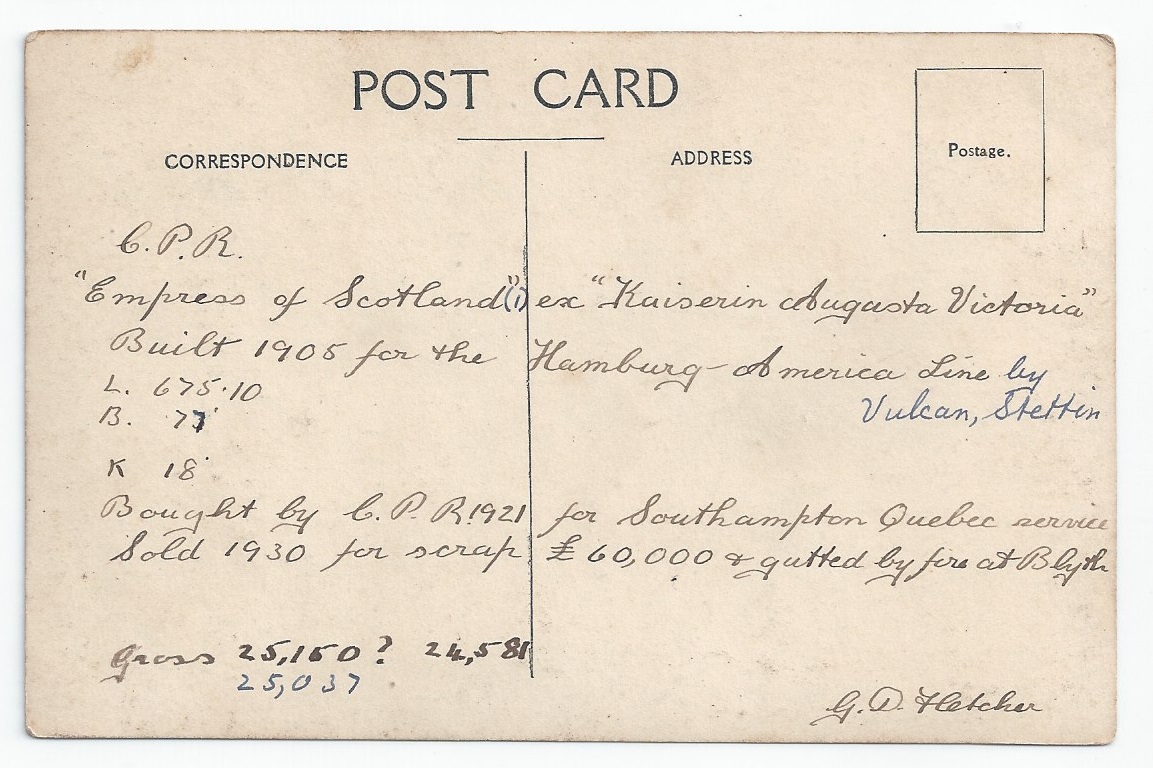 POST CARD
CORRESPONDENCE
ADDRESS
Postage.
C.P.R.
"Empress of Scotland"(1) ex "Kaiserin Augusta Victoria"
Built 1905 for the Hamburg-America Line by
Vulcan, Stettin
L. 675.10
B. 77'
K 18'
Bought by C.P.R. 1921 for Southampton Quebec service
Sold 1930 for scrap £60,000 & gutted by fire at Blyth
Gross 25,160? 24,581
25,037
G.D. Fletcher